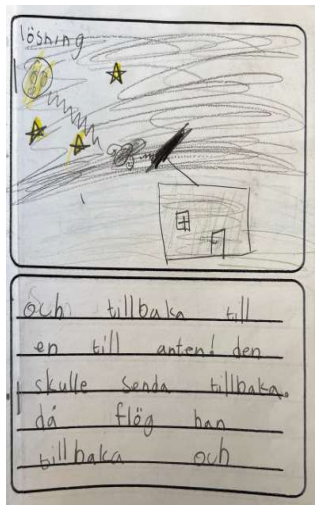 lösning
och tillbaka till
en till anten! den
skulle senda tillbaka.
då flög han
tillbaka och